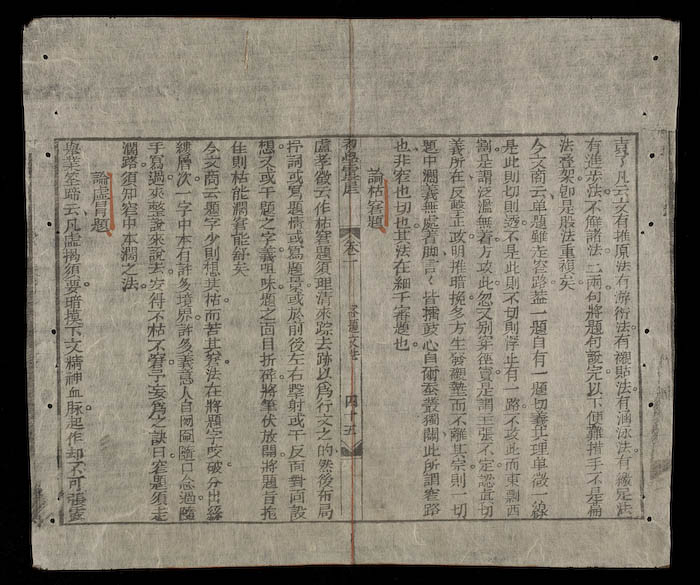 貢了凡云文有推原法有游衍法有襯貼法有涵泳法有繳足法
有進步法不解諸法一兩句將題句說完以下便難措手不是
法疊架卽是股法重複矣
今文商云单題雖走窄路蓋一題自有一題切義其理单微一線
是此則切則透不是此則不切則浮止有一路不攻此而東剽西
掇是謂泛濫無着方攻此忽又別穿徑竇是謂主張不定認直切
義所在反整正敀明推暗挽多方生發襯墊而不離其宗則一切
題中濶義無處著脚言〻皆擂鼓心自衛蚕叢獨闢此所謂窄路
也非窄也切也其法在細干審題也
論枯窘題
初學
卷一
窘題文法
四十五
盧孝徵云作枯窘題須理清來踪去跡以爲行文之的然後布局
抒詞或寫題情或寫題景或於前後左右擊射或干反面對面設
想又或干題之字義咀味題之面目折碎將筆伏放開將題盲拖
住則枯能濶窘能舒矣
今文商云題字少則想其枯而若其窘法在將題字咬破分出線
縷層次一字中本有許多境界許多義意人自囫圇隨口念過隨
手寫過來整說來說去安得不枯不窘予妄爲之訣曰窘題須走
濶路須知窄中本濶之法
論虛冒題
吳荃筌蹄云凡虛揭須要暗摸下文精神血脉起作却不可張露